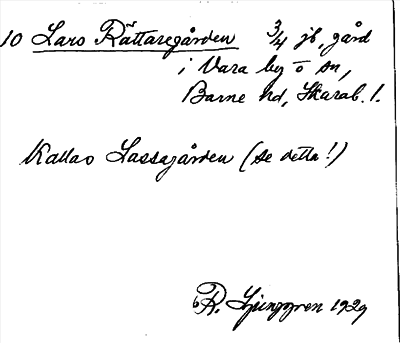 10 Lars Rättaregården 3/4 jb, gård
i Vara by o sn,
Barne hd, Skarab. l.
Kallas Lassagården (se detta!)
R. Ljunggren 1929